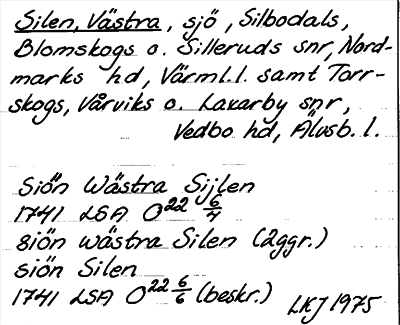 Silen, Västra, sjö, Silbodals,
Blomskogs o. Silleruds snr, Nord-
marks hd, Värml. l. samt Torr-
skogs, Vårviks o. Laxarby snr,
Vedbo hd, Älvsb. l.
Siön Wästra Sijlen
1741 LSA O 22 6/4
siön wästra Silen (2ggr.)
siön Silen
1741 LSA O 22 6/6 (beskr.)
LKJ 1975